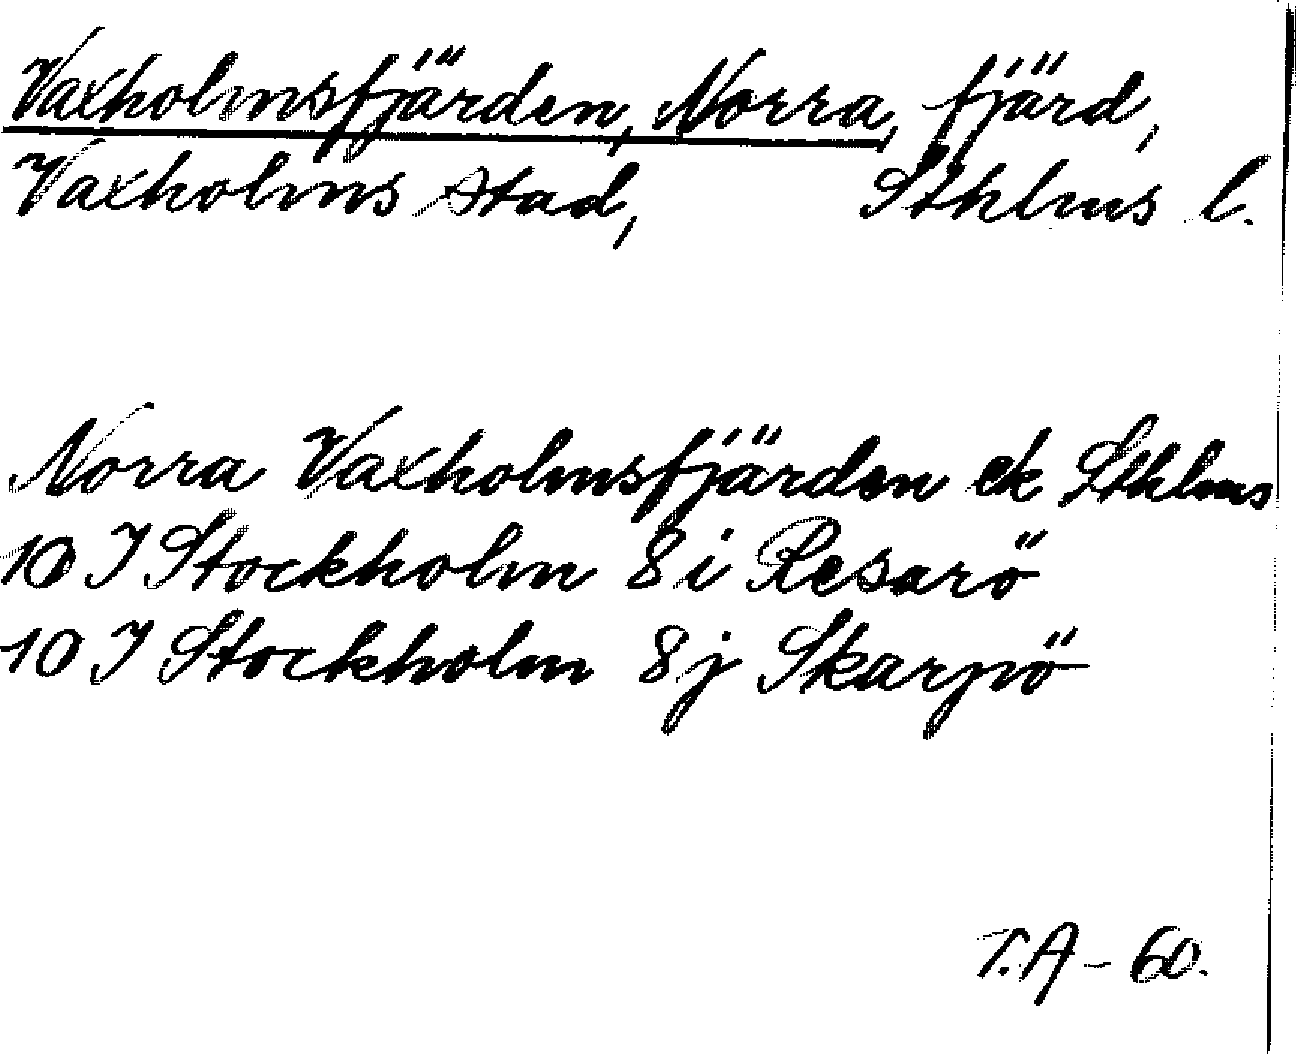 Vaxholmsfjärden, Norra, fjärd,
Vaxholms stad, Sthlms l.
Norra Vaxholmsfjärden ek Sthlms
10 I Stockholm 8 i Resarö
10 I Stockholm 8 j Skarpö
T.A - 60.